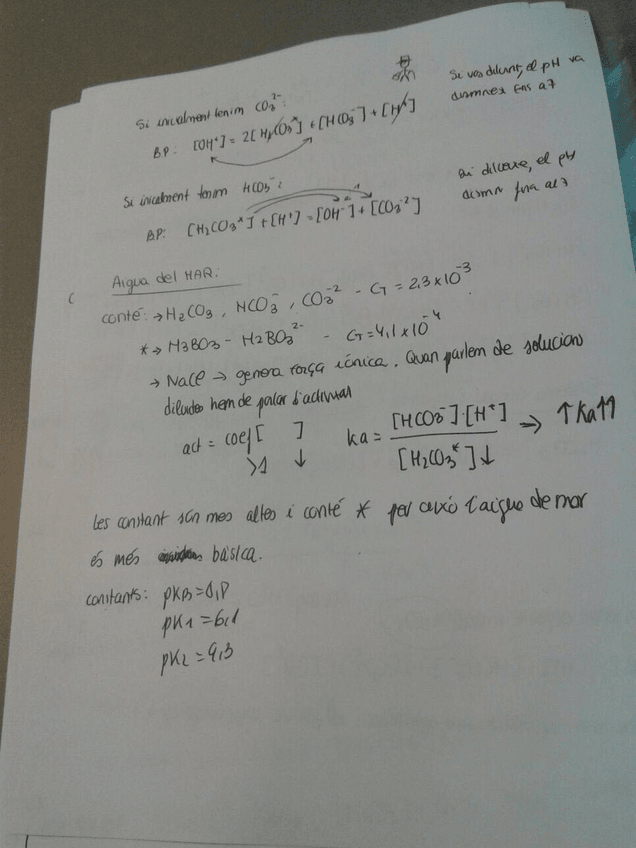 Si inicialment tenim CO₃²⁻:
BP: [OH⁺] = 2[H₂CO₃*] + [HCO₃⁻] + [H⁺]
Si vas diluint, el pH va
fins a 7
Si inicialment tenim HCO₃⁻:
BP: [H₂CO₃*] + [H⁺] = [OH⁻] + [CO₃⁻²]
el pH
al 7
Aigua del MAR:
conté: → H₂CO₃, HCO₃⁻, CO₃⁻² - G = 2,3 x 10⁻³
* → H3BO3 - H2BO3²⁻ - G = 4,1 x 10⁻⁴
→ NaCl → genera força iónica. Quan parlem de solucions
diluides hem de parlar d'activitat
act = coef [ ]
>1 ↓
ka = [HCO₃⁻]·[H⁺] / [H₂CO₃*]↓ → ↑Ka↑↑
Les constant són mes altes i conté * per això l'aigua de mar
és més bàsica.
constants:
pK1 = 6,1
pK2 = 9,3